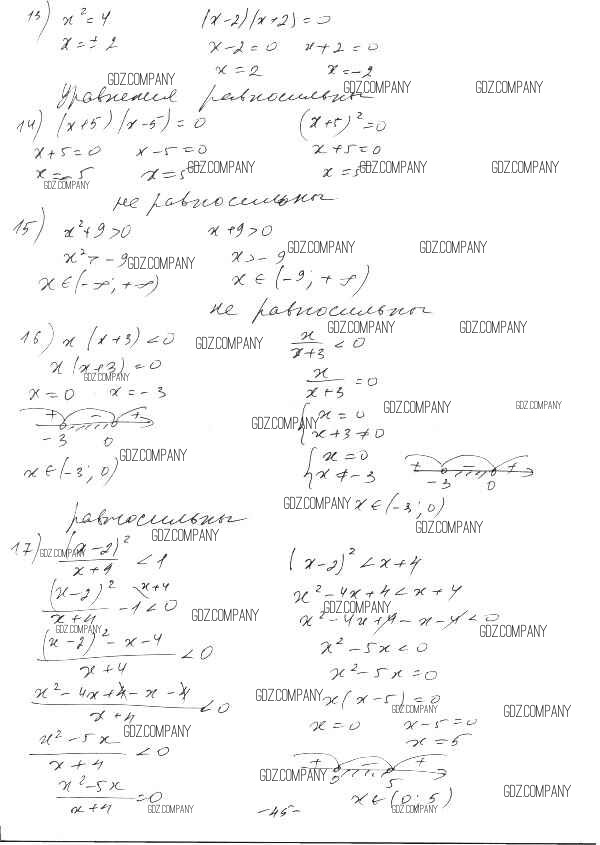 13) x² = 4 (x-2)(x+2) = 0
x = ± 2 x-2=0 x+2=0
x = 2 x = -2
GDZ.COMPANY GDZ.COMPANY GDZ.COMPANY
Уравнения равносильны
14) (x+5)(x-5) = 0 (x+5)² = 0
x+5=0 x-5=0 x+5=0
GDZ.COMPANY GDZ.COMPANY GDZ.COMPANY
x = -5 x = 5 x = 5
GDZ.COMPANY
не равносильны
15) x²+9>0 x+9>0
GDZ.COMPANY GDZ.COMPANY
x² > -9 GDZ.COMPANY x > -9
x ∈ (-∞; +∞) x ∈ (-9; +∞)
не равносильны
GDZ.COMPANY GDZ.COMPANY
16) x (x+3) < 0 GDZ.COMPANY x/(x+3) < 0
x (x+3) = 0 x/(x+3) = 0
GDZ.COMPANY
x = 0 x = -3 GDZ.COMPANY GDZ.COMPANY
+ - + GDZ.COMPANY { x = 0
-3 0 x+3 ≠ 0
GDZ.COMPANY { x = 0
x ∈ (-3; 0) x ≠ -3 + - +
-3 0
GDZ.COMPANY x ∈ (-3; 0)
равносильны GDZ.COMPANY
GDZ.COMPANY
17) GDZ.COMPANY (x-2)²/(x+4) < 1 (x-2)² < x+4
(x-2)²/(x+4) - 1 < 0 x+4 x² - 4x + 4 < x + 4
GDZ.COMPANY GDZ.COMPANY x² - 4x + 4 - x - 4 < 0
GDZ.COMPANY GDZ.COMPANY
((x-2)² - x - 4)/(x+4) < 0 x² - 5x < 0
x² - 5x = 0
(x² - 4x + 4 - x - 4)/(x+4) < 0 GDZ.COMPANY x(x-5) = 0
GDZ.COMPANY GDZ.COMPANY
x = 0 x-5=0
GDZ.COMPANY x = 5
(x² - 5x)/(x+4) < 0 + - +
GDZ.COMPANY 0 5
(x² - 5x)/(x+4) = 0 x ∈ (0; 5) GDZ.COMPANY
GDZ.COMPANY -45- GDZ.COMPANY